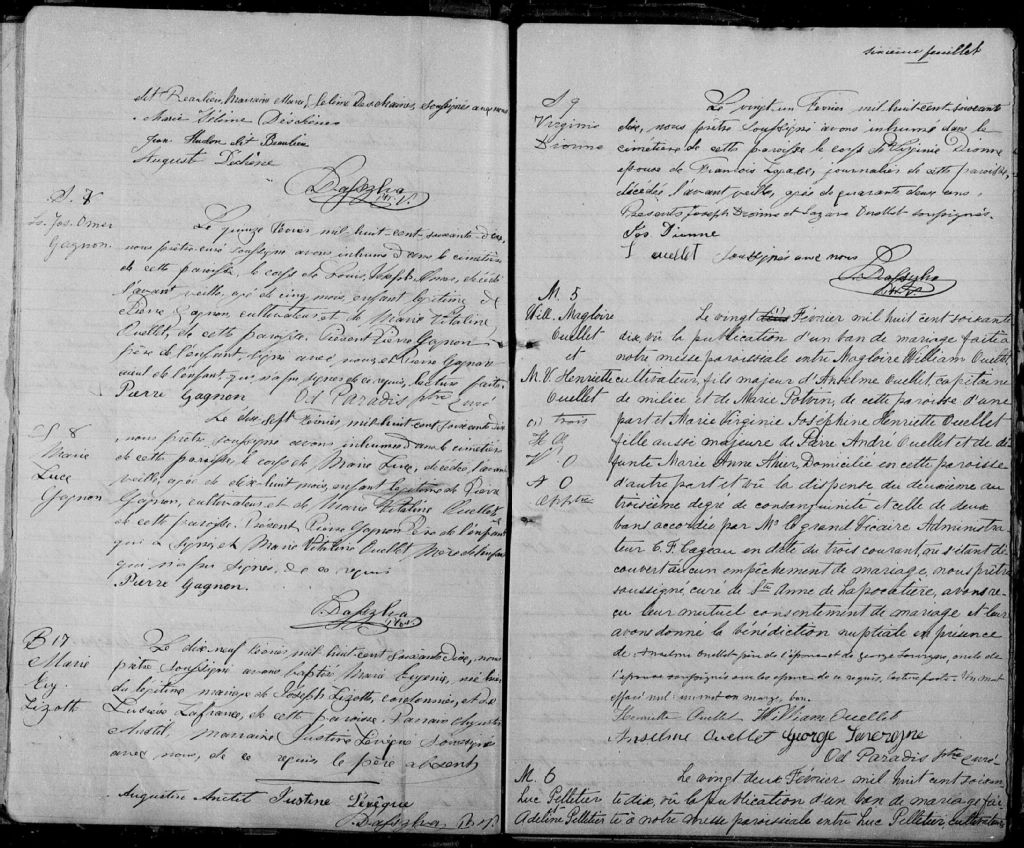 dit Beaulieu, Marraine Marie, Céline Deschaines, soussignés avec nous
Marie Céleine Deschênes
Jean Hudon dit Beaulieu
August Dechene
Ptr. V.
S. 7
Ls. Jos. Omer
Gagnon.
Le quinze Février mil-huit-cent-soixante-dix,
nous prêtre-curé soussigné avons inhumé dans le cimetière
de cette paroisse, le corps de Louis, Joseph, Omer, décédé
l'avant veille, agé de cinq mois, enfant légitime de
Pierre Gagnon, cultivateur, et de Marie Vitaline
Ouellet, de cette paroisse. Présent Pierre Gagnon
père de l'enfant signé avec nous, et Pierre Gagnon
de l'enfant, qui n'a su signer de ce requis, lecture faite.
Pierre Gagnon Od Paradis ptre Curé
S. 8
Marie
Luce
Gagnon
Le dix sept Février mil huit cent soixante dix
nous prêtre, soussigné avons inhumé dans le cimetière
de cette paroisse, le corps de Marie Luce, décédée l'avant
veille, agée de dix-huit mois, enfant légitime de Pierre
Gagnon, cultivateur, et de Marie Vitaline Ouellet
de cette paroisse. Présent, Pierre Gagnon Père de l'enfant
qui a signé, et Marie Vitaline Ouellet, Mère de l'enfant
qui n'a su signer, de ce requis
Pierre Gagnon.
Ptr. V.
B 17
Marie
Eug.
Lizott
Le dix neuf Février, mil huit cent soixante dix, nous
prêtre soussigné avons baptisé Marie Eugenie, née hier
du légitime mariage de Joseph Lizotte, cordonnier, et de
Lucrèce Lafrance, de cette paroisse. Parrain Augustin
Anctil, marraine Justine Lévêque soussignés
avec nous, de ce requis le père absent,
Augustin Anctil Justine Lévêque
sixième feuillet
S 9
Virginie
Dionne
Le vingt un Février mil huit-cent-soixante
dix, nous prêtre soussigné avons inhumé dans le
cimetière de cette paroisse le corps de Virginie Dionne
épouse de Francois journalier de cette paroisse,
décédée l'avant veille, agée de quarante deux ans.
Présents Joseph Dionne et Lazare Ouellet soussignés.
Jos. Dionne
L ouellet soussignés avec nous
Ptr. V.
M. 5
Will. Magloire
Ouellet
et
M. V. Henriette
Ouellet
(1) trois
H. O
W. O
A O
Od P ptre
Le vingt (1) Février mil huit cent soixante
dix, vû la publication d'un ban de mariage faite à
notre messe paroissiale entre Magloire William Ouellet,
cultivateur, fils majeur d'Anselme Ouellet, capitaine
de milice et de Marie Potvin, de cette paroisse d'une
part et Marie Virginie Joséphine Henriette Ouellet
fille aussi majeure de Pierre André Ouellet et de dé
funte Marie Anne Domicilié en cette paroisse
d'autre part et vû la dispense du deuxième au
troisième degré de consanguinité et celle de deux
bans accordée par Mr le grand Vicaire Administra
teur C. F. Cazeau en date du trois courant, ne s'étant dé
couvert aucun empêchement de mariage, nous prêtre
soussigné, curé de Ste Anne de Lapocatière, avons re-
cu leur mutuel consentement de mariage et leur
avons donné la bénédiction nuptiale en présence
de Anselme Ouellet père de l'époux et de George oncle de
l'épouse soussignés avec les époux de ce requis, lecture faite. Un mot
effacé nul un mot en marge, bon.
Henriette Ouellet William Ouellet
Anselme Ouellet George
Od Paradis ptre Curé
M. 6
Luc Pelletier
Adeline Pelletier
Le vingt deux Février mil huit cent soixan
te dix, vû la publication d'un ban de mariage fai
te à notre messe paroissiale entre Luc Pelletier, cultivateur